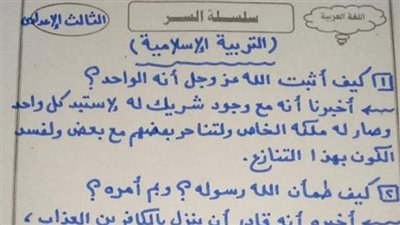 اللغة العربية
سلسلة السر
الثالث الإعدادى
(التربية الإسلامية)
١ كيف أثبت الله عز وجل أنه الواحد؟
← أخبرنا أنه مع وجود شريك له لاستبد كل واحد
وصار له ملكه الخاص ولتناحر بعضهم مع بعض ولفسد
الكون بهذا التنازع.
٢ كيف طمأن الله رسوله؟ وبم أمره؟
← أخبره أنه قادر أن ينزل بالكافرين العذاب،